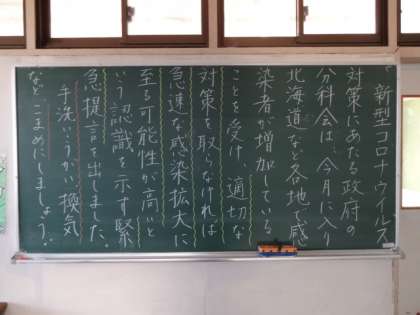 新型コロナウイルス
対策にあたる政府の
分科会は、今月に入り
北海道など各地で感
染者が増加している
ことを受け、適切な
対策を取らなければ
急速な感染拡大に
至る可能性が高いと
いう認識を示す緊
急提言を出しました。
手洗い、うがい、換気
など、こまめにしましょう。